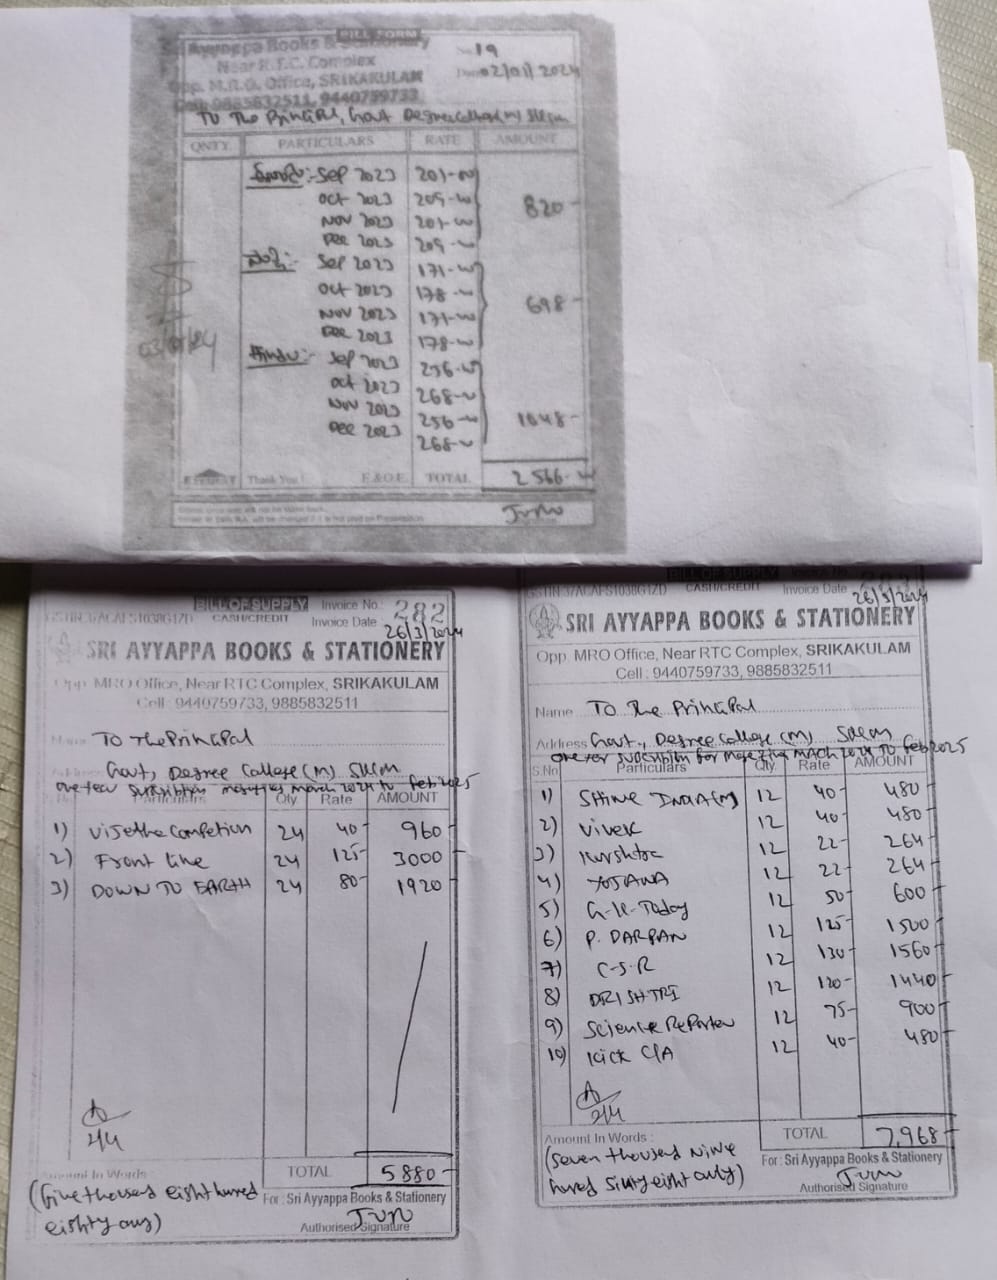 BILL FORM
Sri Ayyappa Books & Stationery
No. 19
Near R.T.C. Complex
Opp. M.R.O. Office, SRIKAKULAM
Date 02/01/2024
Cell: 9885832511, 9440759733
To The Principal, Govt Degree College (m) Sklm
QNTY. PARTICULARS RATE AMOUNT
Sep 2023 201-00
Oct 2023 209-00 820-
Nov 2023 201-00
Dec 2023 209-00
Sep 2023 171-00
Oct 2023 178-00 698-
Nov 2023 171-00
Dec 2023 178-00
Hindu:- Sep 2023 256-00
Oct 2023 268-00
Nov 2023 256-00 1048-
Dec 2023 268-00
Thank You! E.&O.E. TOTAL 2566-00
BILL OF SUPPLY Invoice No.: 282
CASH/CREDIT Invoice Date 26/3/2024
SRI AYYAPPA BOOKS & STATIONERY
Opp. MRO Office, Near RTC Complex, SRIKAKULAM
Cell : 9440759733, 9885832511
Name To The Principal
Address Govt, Degree College (m) Sklm
March 2024 to Feb 2025
Particulars Qty Rate AMOUNT
1) 24 40- 960-
2) Front line 24 125- 3000-
3) DOWN TO EARTH 24 80- 1920-
2/4
Amount In Words
TOTAL 5880-
(five thousand eight hundred
eighty only)
For : Sri Ayyappa Books & Stationery
Authorised Signature
CASH/CREDIT Invoice Date 26/3/2024
SRI AYYAPPA BOOKS & STATIONERY
Opp. MRO Office, Near RTC Complex, SRIKAKULAM
Cell : 9440759733, 9885832511
Name To The Principal
Address Govt, Degree College (m) Sklm
Feb 2025
S.No Particulars Qty. Rate AMOUNT
1) Shine India (m) 12 40- 480-
2) Vivek 12 40- 480-
3) 12 22- 264-
4) YOJANA 12 22- 264-
5) G.K. Today 12 50- 600-
6) P. DARPAN 12 125- 1500-
7) C-S-R 12 130- 1560-
8) DRISHTRI 12 120- 1440-
9) Science Reporter 12 75- 900-
10) Kick C/A 12 40- 480-
2/4
Amount In Words :
TOTAL 7,968-
(Seven thousand nine
hundred sixty eight only)
For : Sri Ayyappa Books & Stationery
Authorised Signature